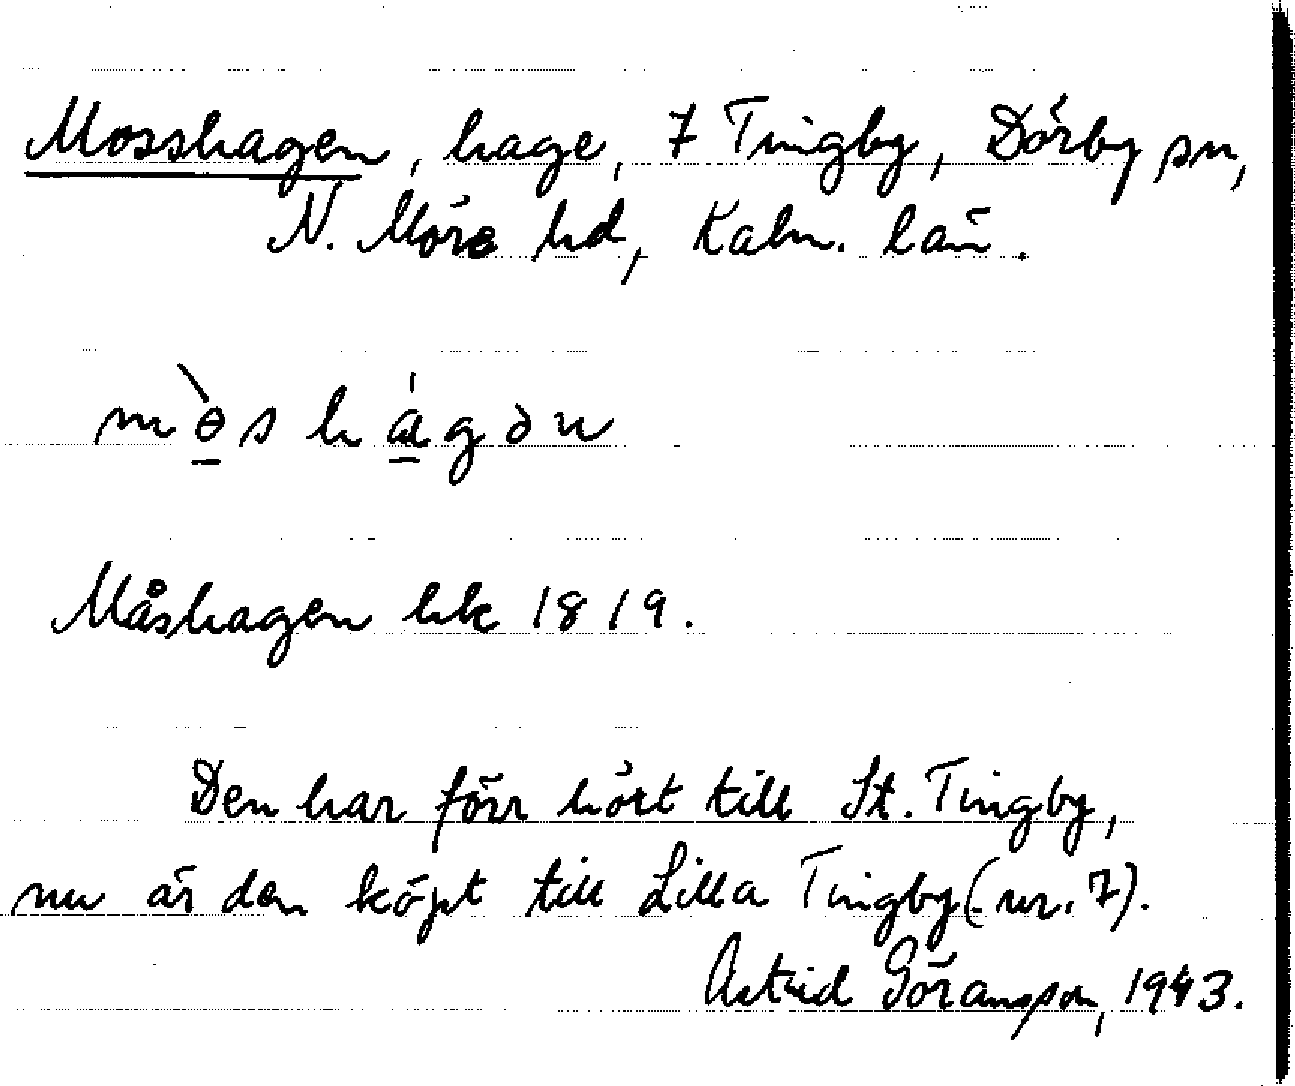 Mosshagen, hage, 7 Tingby, Dörby sn,
N. Möre hd, Kalm. län.
mɵ̀sha̍gən
Måshagen hk 1819.
Den har förr hört till St. Tingby,
nu är den köpt till Lilla Tingby (nr. 7).
Astrid Göransson, 1943.